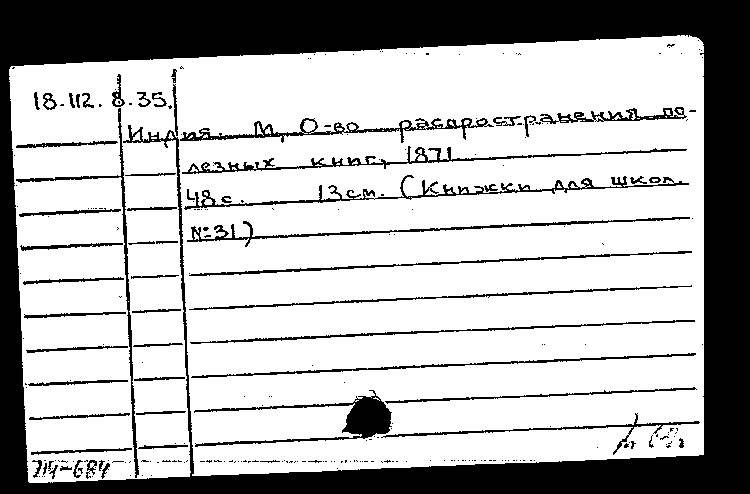 18.112.8.35.
Индия. М, О-во распространения по-
лезных книг, 1871
48 с. 13 см. (Книжки для школ.
№31)
714-684